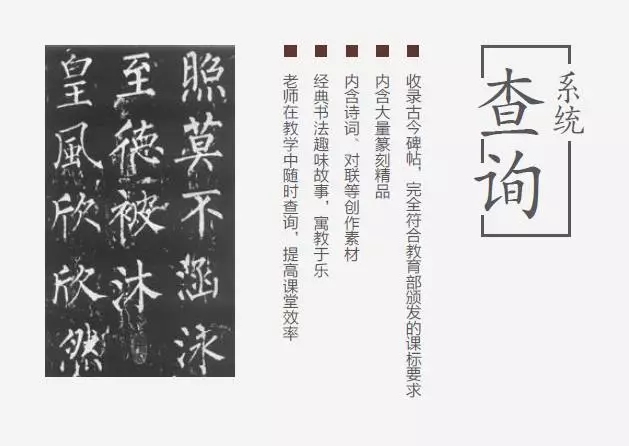 查询
系统
收录古今碑帖，完全符合教育部颁发的课标要求
内含大量篆刻精品
内含诗词、对联等创作素材
经典书法趣味故事，寓教于乐
老师在教学中随时查询，提高课堂效率
照莫不涵泳
至德被沐
皇風欣欣然